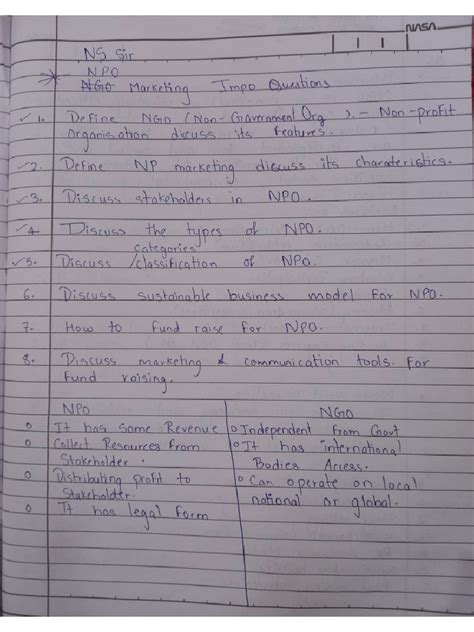 NASA
NS Sir
NPO
NGO Marketing Impo Questions
1. Define NGO (Non-Government Org). - Non-profit
Organisation discuss its features.
2. Define NP marketing discuss its charateristics.
3. Discuss stakeholders in NPO.
4. Discuss the types of NPO.
categories
5. Discuss /classification of NPO.
6. Discuss sustainable business model for NPO.
7. How to fund raise for NPO.
8. Discuss marketing & communication tools. for
fund raising.
NPO
o It has Some Revenue
o Collect Resources from
Stakeholder.
o Distributing profit to
Stakeholder.
o It has legal form
NGO
o Independent from Govt
o It has international
Bodies Access.
o Can operate on local
national or global.